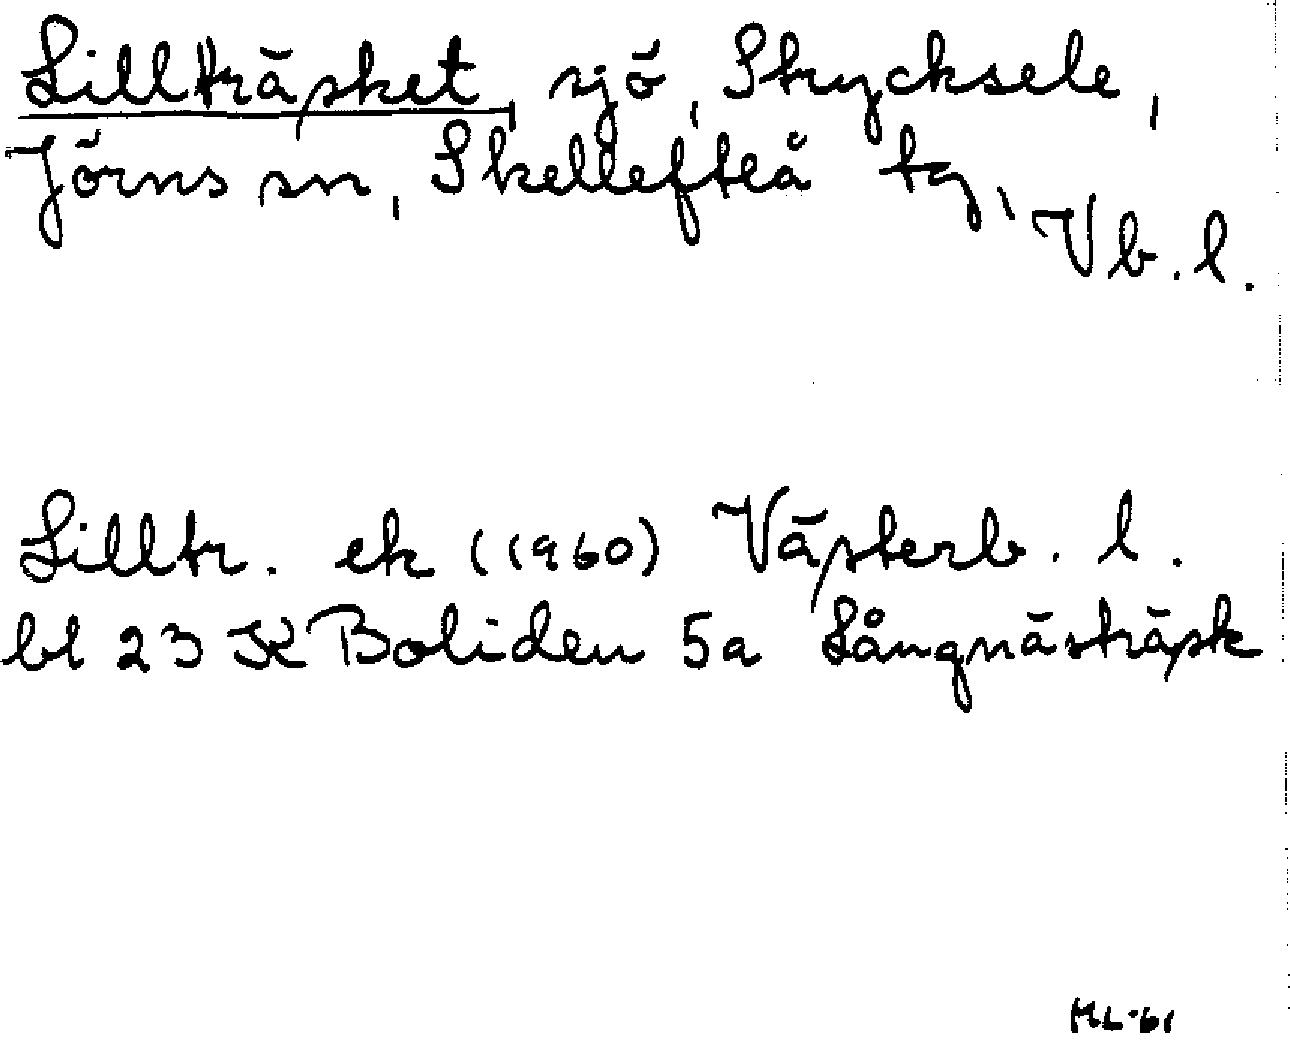 Lillträsket, sjö, Strycksele,
Jörns sn, Skellefteå tg, Vb. l.
Lilltr. ek (1960) Västerb. l.
bl 23 K Boliden 5a Långnästräsk
HL-61